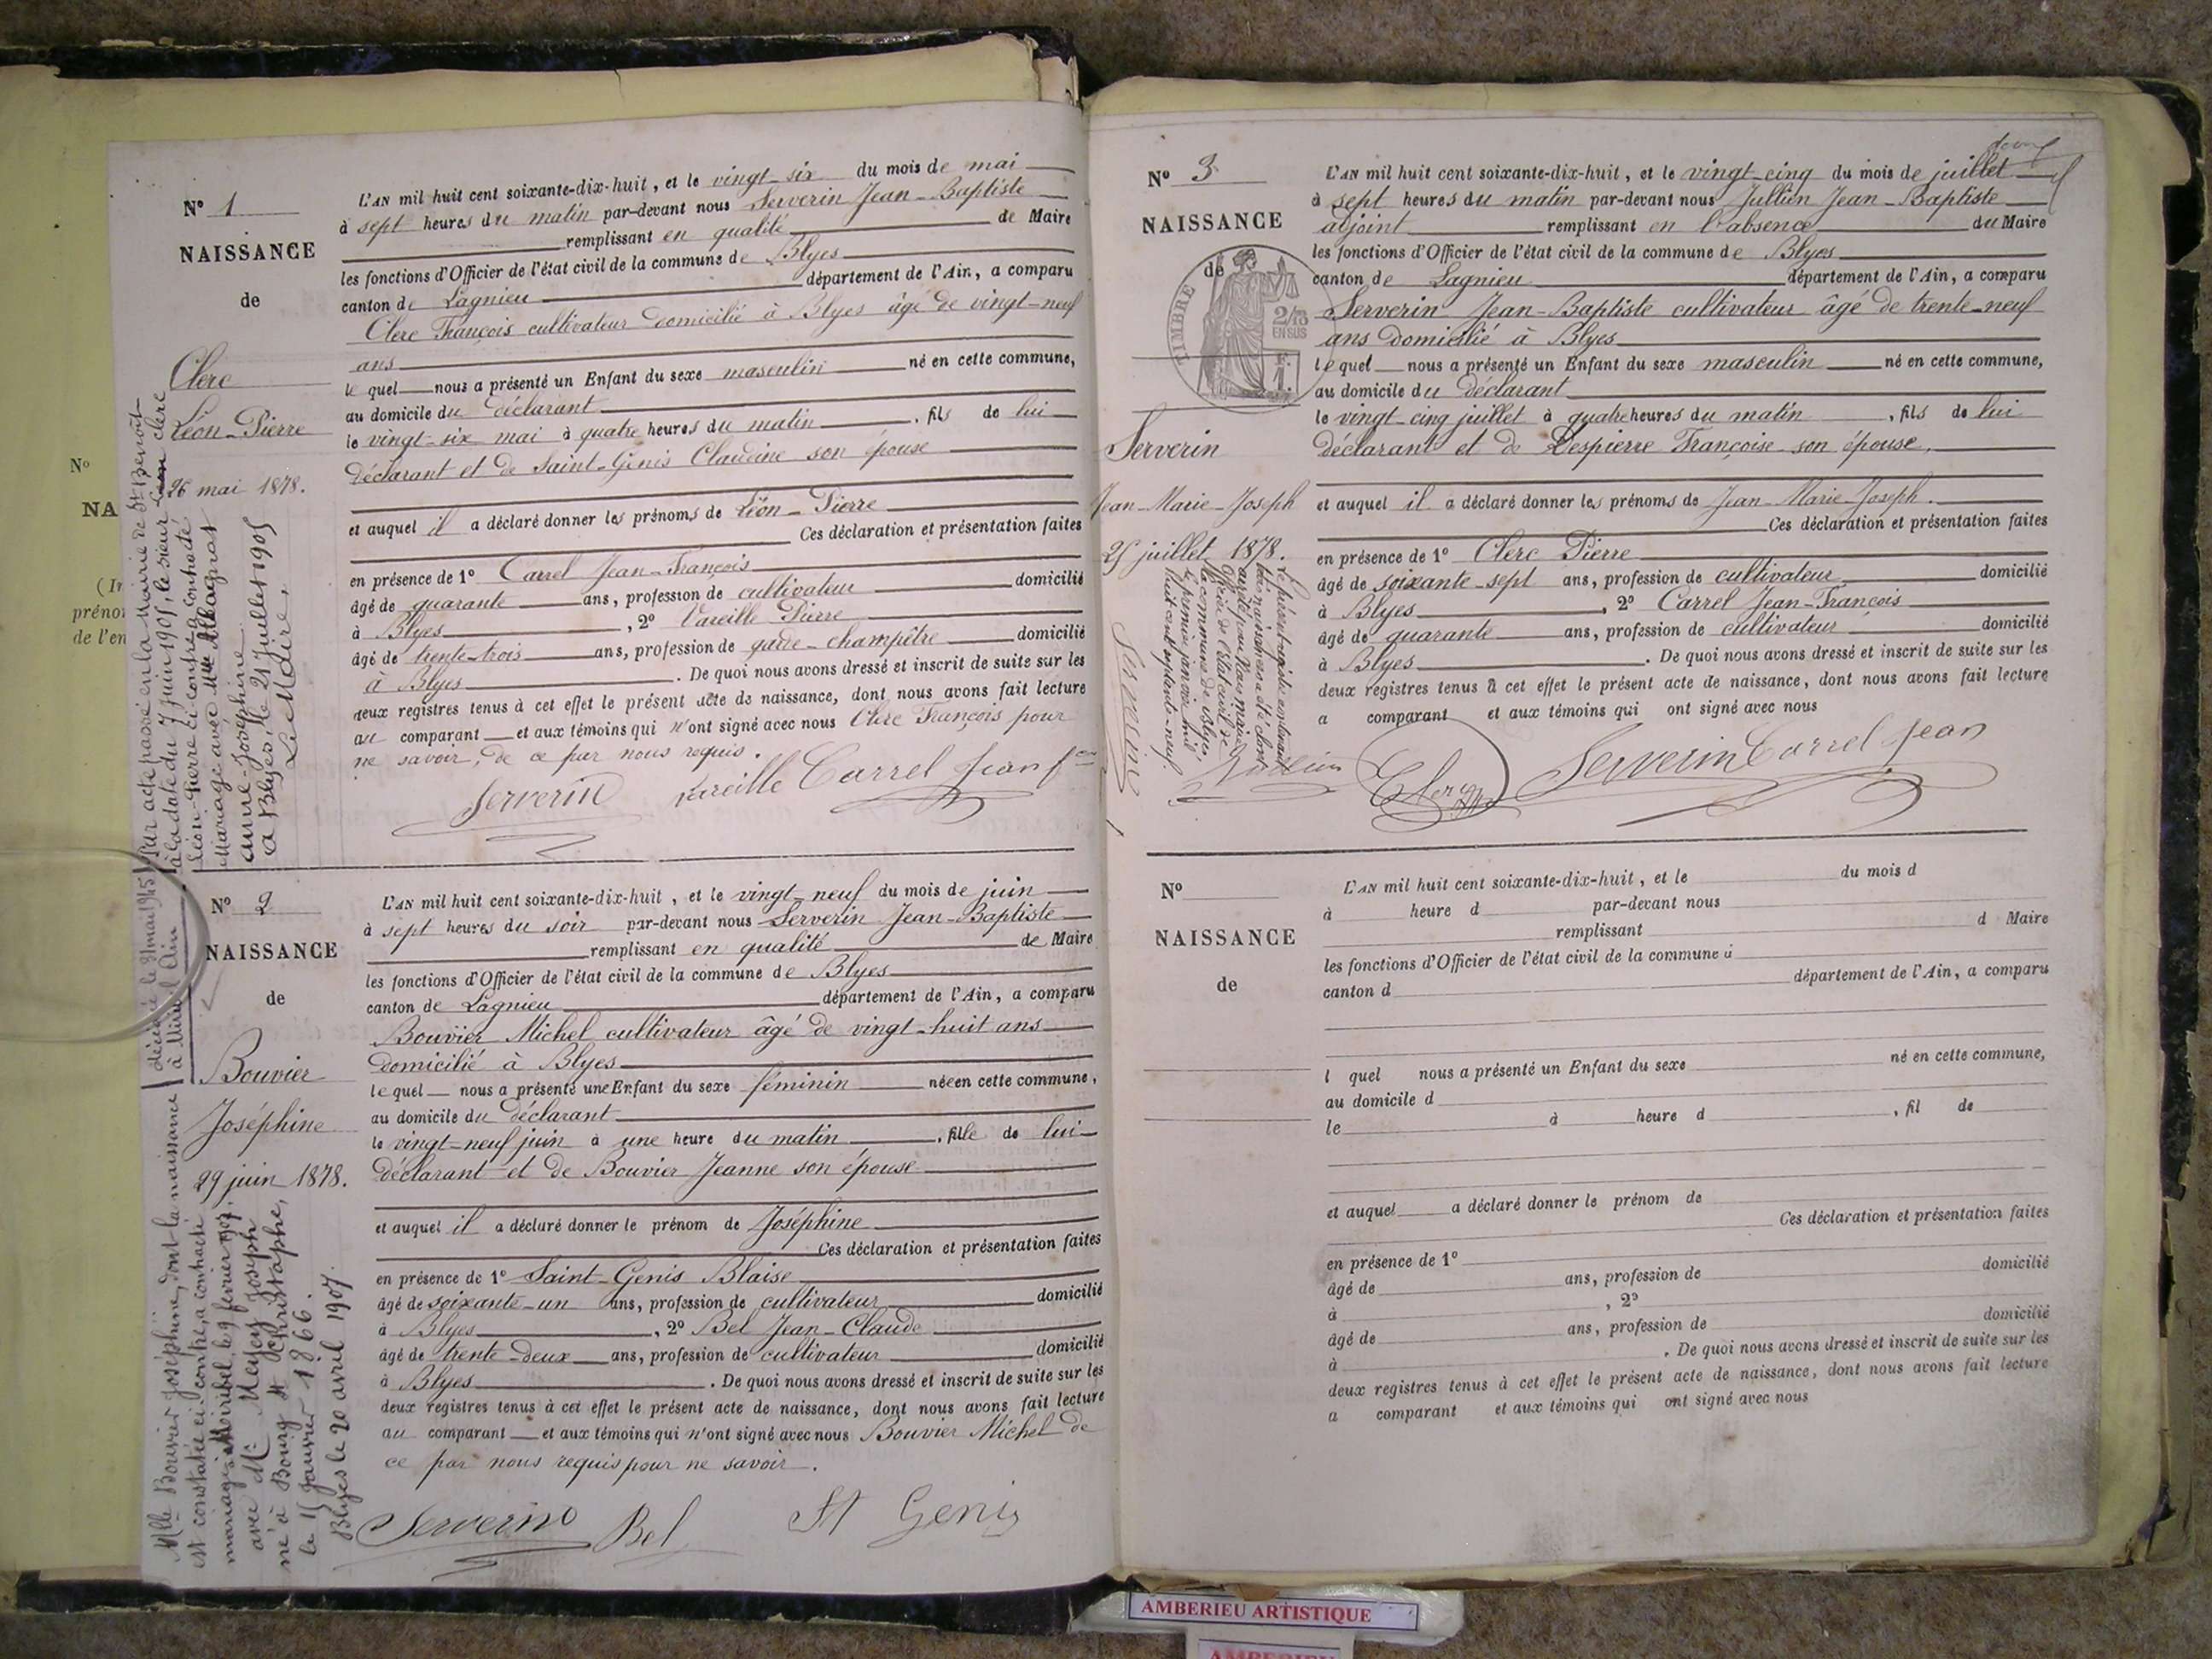 Nº 1
NAISSANCE
de
Clerc
Léon-Pierre
26 mai 1878.
Par acte passé en la Mairie de St Benoit
à la date du 7 juin 1905, le sieur Clerc
Léon-Pierre ci-contre a contracté
Mariage avec Mlle
Anne-Joséphine.
à Blyes, le 21 juillet 1905
Le Maire,
L'AN mil huit cent soixante-dix-huit, et le vingt-six du mois de mai
à sept heures du matin par-devant nous Serverin Jean-Baptiste
remplissant en qualité de Maire
les fonctions d'Officier de l'état civil de la commune de Blyes
canton de Lagnieu département de l'Ain, a comparu
Clerc François cultivateur domicilié à Blyes âgé de vingt-neuf
ans
lequel nous a présenté un Enfant du sexe masculin né en cette commune,
au domicile du déclarant
le vingt-six mai à quatre heures du matin, fils de lui
déclarant et de Saint-Genis Claudine son épouse
et auquel il a déclaré donner les prénoms de Léon-Pierre
Ces déclaration et présentation faites
en présence de 1º Carrel Jean-François
âgé de quarante ans, profession de cultivateur domicilié
à Blyes, 2º Vareille Pierre
âgé de trente-trois ans, profession de garde-champêtre domicilié
à Blyes. De quoi nous avons dressé et inscrit de suite sur les
deux registres tenus à cet effet le présent acte de naissance, dont nous avons fait lecture
au comparant et aux témoins qui n'ont signé avec nous Clerc François pour
ne savoir, de ce par nous requis.
Serverin Vareille Carrel Jean f
Nº
NA
(In
prénom
de l'en
Nº 2
NAISSANCE
de
Bouvier
Joséphine
29 juin 1878.
décédée le 31 mai 1945
à Miribel Ain
Mlle Bouvier Joséphine, dont la naissance
est constatée ci-contre, a contracté
mariage à Miribel, le 9 février 1907
avec Mr Joseph
né à Bourg St Christophe,
le 15 janvier 1866.
Blyes le 20 avril 1907.
L'AN mil huit cent soixante-dix-huit, et le vingt-neuf du mois de juin
à sept heures du soir par-devant nous Serverin Jean-Baptiste
remplissant en qualité de Maire
les fonctions d'Officier de l'état civil de la commune de Blyes
canton de Lagnieu département de l'Ain, a comparu
Bouvier Michel cultivateur âgé de vingt-huit ans
domicilié à Blyes
lequel nous a présenté une Enfant du sexe féminin née en cette commune,
au domicile du déclarant
le vingt-neuf juin à une heure du matin, fille de lui
déclarant et de Bouvier Jeanne son épouse
et auquel il a déclaré donner le prénom de Joséphine
Ces déclaration et présentation faites
en présence de 1º Saint-Genis Blaise
âgé de soixante-un ans, profession de cultivateur domicilié
à Blyes, 2º Bel Jean-Claude
âgé de trente-deux ans, profession de cultivateur domicilié
à Blyes. De quoi nous avons dressé et inscrit de suite sur les
deux registres tenus à cet effet le présent acte de naissance, dont nous avons fait lecture
au comparant et aux témoins qui n'ont signé avec nous Bouvier Michel de
ce par nous requis pour ne savoir.
Serverin Bel St Genis
Nº 3
NAISSANCE
de
TIMBRE
2/10
EN SUS
Serverin
Jean-Marie-Joseph
25 juillet 1878.
Le présent registre contenant
trois naissances a été clos et
arrêté par nous maire
officier de l'état civil de
la commune de Blyes,
le premier janvier mil
huit cent soixante-dix-neuf.
Serverin
L'AN mil huit cent soixante-dix-huit, et le vingt-cinq du mois de juillet
à sept heures du matin par-devant nous Jullien Jean-Baptiste
adjoint remplissant en l'absence du Maire
les fonctions d'Officier de l'état civil de la commune de Blyes
canton de Lagnieu département de l'Ain, a comparu
Serverin Jean-Baptiste cultivateur âgé de trente-neuf
ans domicilié à Blyes
lequel nous a présenté un Enfant du sexe masculin né en cette commune,
au domicile du déclarant
le vingt-cinq juillet à quatre heures du matin, fils de lui
déclarant et de Despierre Françoise son épouse,
et auquel il a déclaré donner les prénoms de Jean-Marie-Joseph.
Ces déclaration et présentation faites
en présence de 1º Clerc Pierre
âgé de soixante-sept ans, profession de cultivateur domicilié
à Blyes, 2º Carrel Jean-François
âgé de quarante ans, profession de cultivateur domicilié
à Blyes. De quoi nous avons dressé et inscrit de suite sur les
deux registres tenus à cet effet le présent acte de naissance, dont nous avons fait lecture
a comparant et aux témoins qui ont signé avec nous
Jullien Clerc Serverin Carrel Jean
Nº
NAISSANCE
de
L'AN mil huit cent soixante-dix-huit, et le du mois d
à heure d par-devant nous
remplissant d Maire
les fonctions d'Officier de l'état civil de la commune d
canton d département de l'Ain, a comparu
l quel nous a présenté un Enfant du sexe né en cette commune,
au domicile d
le à heure d, fil de
et auquel a déclaré donner le prénom de
Ces déclaration et présentation faites
en présence de 1º domicilié
âgé de ans, profession de
à, 2º
âgé de ans, profession de domicilié
à. De quoi nous avons dressé et inscrit de suite sur les
deux registres tenus à cet effet le présent acte de naissance, dont nous avons fait lecture
a comparant et aux témoins qui ont signé avec nous
AMBERIEU ARTISTIQUE
AMBERIEU